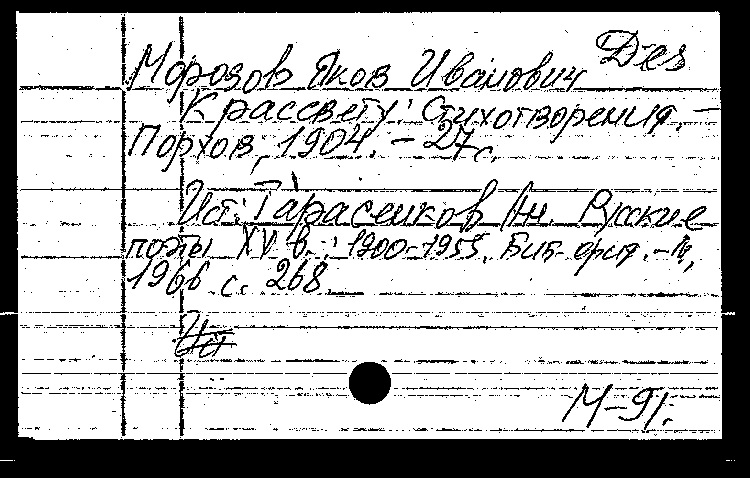 Дез
Морозов Яков Иванович
К рассвету: Стихотворения. –
Порхов, 1904. – 27 с.
Ист: Тарасенков Ан. Русские
поэты XV в.: 1900-1955. Биб-огия. – М,
1966 с. 268.
М-91.